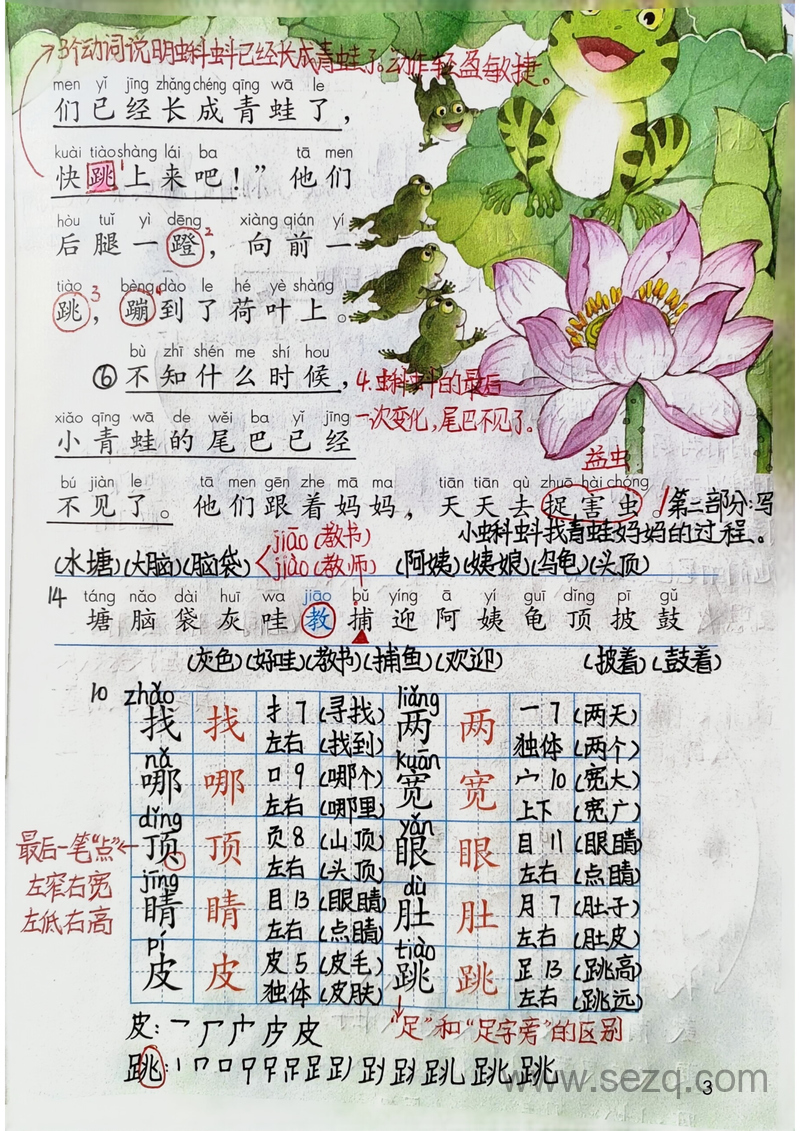 3个动词说明蝌蚪已经长成青蛙了。动作轻盈敏捷。
men yǐ jīng zhǎng chéng qīng wā le
们已经长成青蛙了，
kuài tiào shàng lái ba tā men
快跳上来吧！”他们
1
hòu tuǐ yì dēng xiàng qián yí
后腿一蹬，向前一
2
tiào bèng dào le hé yè shàng
跳，蹦到了荷叶上。
3
bù zhī shén me shí hou
⑥不知什么时候，
4.蝌蚪的最后
一次变化，尾巴不见了。
xiǎo qīng wā de wěi ba yǐ jīng
小青蛙的尾巴已经
益虫
bú jiàn le tā men gēn zhe mā ma tiān tiān qù zhuō hài chóng
不见了。他们跟着妈妈，天天去捉害虫。
第二部分：写
小蝌蚪找青蛙妈妈的过程。
(水塘)(大脑)(脑袋) jiāo(教书) (阿姨)(姨娘)(乌龟)(头顶)
jiào(教师)
14 táng nǎo dài huī wa jiāo bǔ yíng ā yí guī dǐng pī gǔ
塘脑袋灰哇教捕迎阿姨龟顶披鼓
(灰色)(好哇)(教书)(捕鱼)(欢迎) (披着)(鼓着)
10 zhǎo liǎng
找 找 扌7 (寻找) 两 两 一7 (两天)
左右 (找到) 独体 (两个)
nǎ kuān
哪 哪 口9 (哪个) 宽 宽 宀10 (宽大)
左右 (哪里) 上下 (宽广)
dǐng yǎn
顶 顶 页8 (山顶) 眼 眼 目11 (眼睛)
左右 (头顶) 左右 (点睛)
最后一笔“点”
左窄右宽
左低右高
jīng dù
睛 睛 目13 (眼睛) 肚 肚 月7 (肚子)
左右 (点睛) 左右 (肚皮)
pí tiào
皮 皮 皮5 (皮毛) 跳 跳 足13 (跳高)
独体 (皮肤) 左右 (跳远)
皮：
“足”和“足字旁”的区别
跳：
www.sezq.com
3